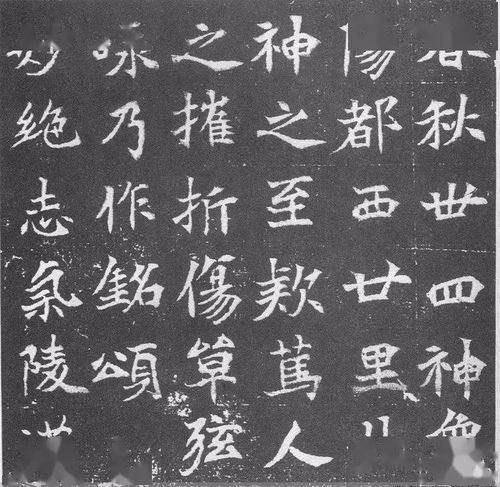 秋丗四神
都西廿里
神之至欵篤人
之摧折傷單弦
咏乃作銘頌
妙絶志氣陵